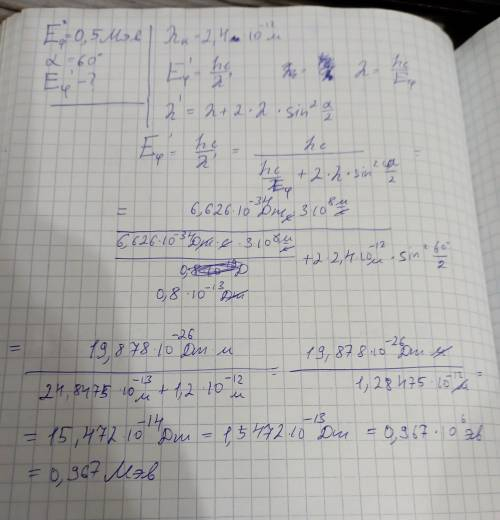 Eφ = 0,5 Мэв
α = 60°
Eφ' - ?
λк = 2,4 · 10⁻¹² м
Eφ' = hc/λ' λ = hc/Eφ
λ' = λ + 2 · λ · sin² α/2
Eφ' = hc/λ' = hc / (hc/Eφ + 2 · λ · sin² α/2) =
= 6,626 · 10⁻³⁴ Дж с · 3 · 10⁸ м/с
6,626 · 10⁻³⁴ Дж · с · 3 · 10⁸ м/с / 0,8 · 10⁻¹³ Дж + 2 · 2,4 · 10⁻¹² м · sin² 60°/2
= 19,878 · 10⁻²⁶ Дж м / (24,8475 · 10⁻¹³ м + 1,2 · 10⁻¹² м) = 19,878 · 10⁻²⁶ Дж м / 1,28475 · 10⁻¹² м =
= 15,472 · 10⁻¹⁴ Дж = 1,5472 · 10⁻¹³ Дж = 0,967 · 10⁶ эв
= 0,967 Мэв